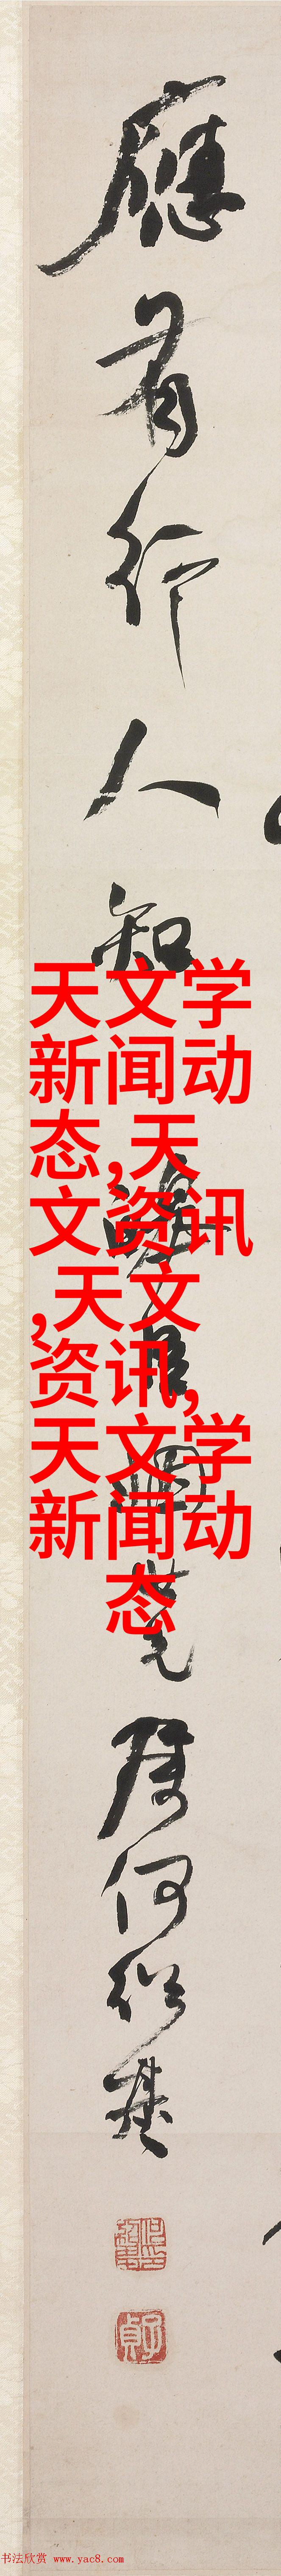 應有行人知
天文学
新闻动
态,天
文资讯
,天文
资讯,
天文学
新闻动
态
何紹基
子貞
书法欣赏 www.yac8.com